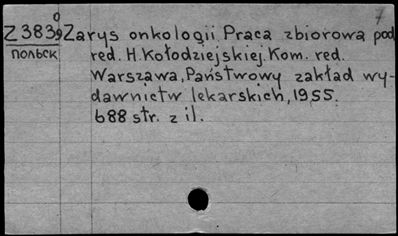 7
Z 3839 Zarys onkologii. Praca zbiorowa pod
польск red. H. Kołodziejskiej. Kom. red.
Warszawa, Państwowy zakład wy-
dawnictw lekarskich, 1955.
688 str. z il.